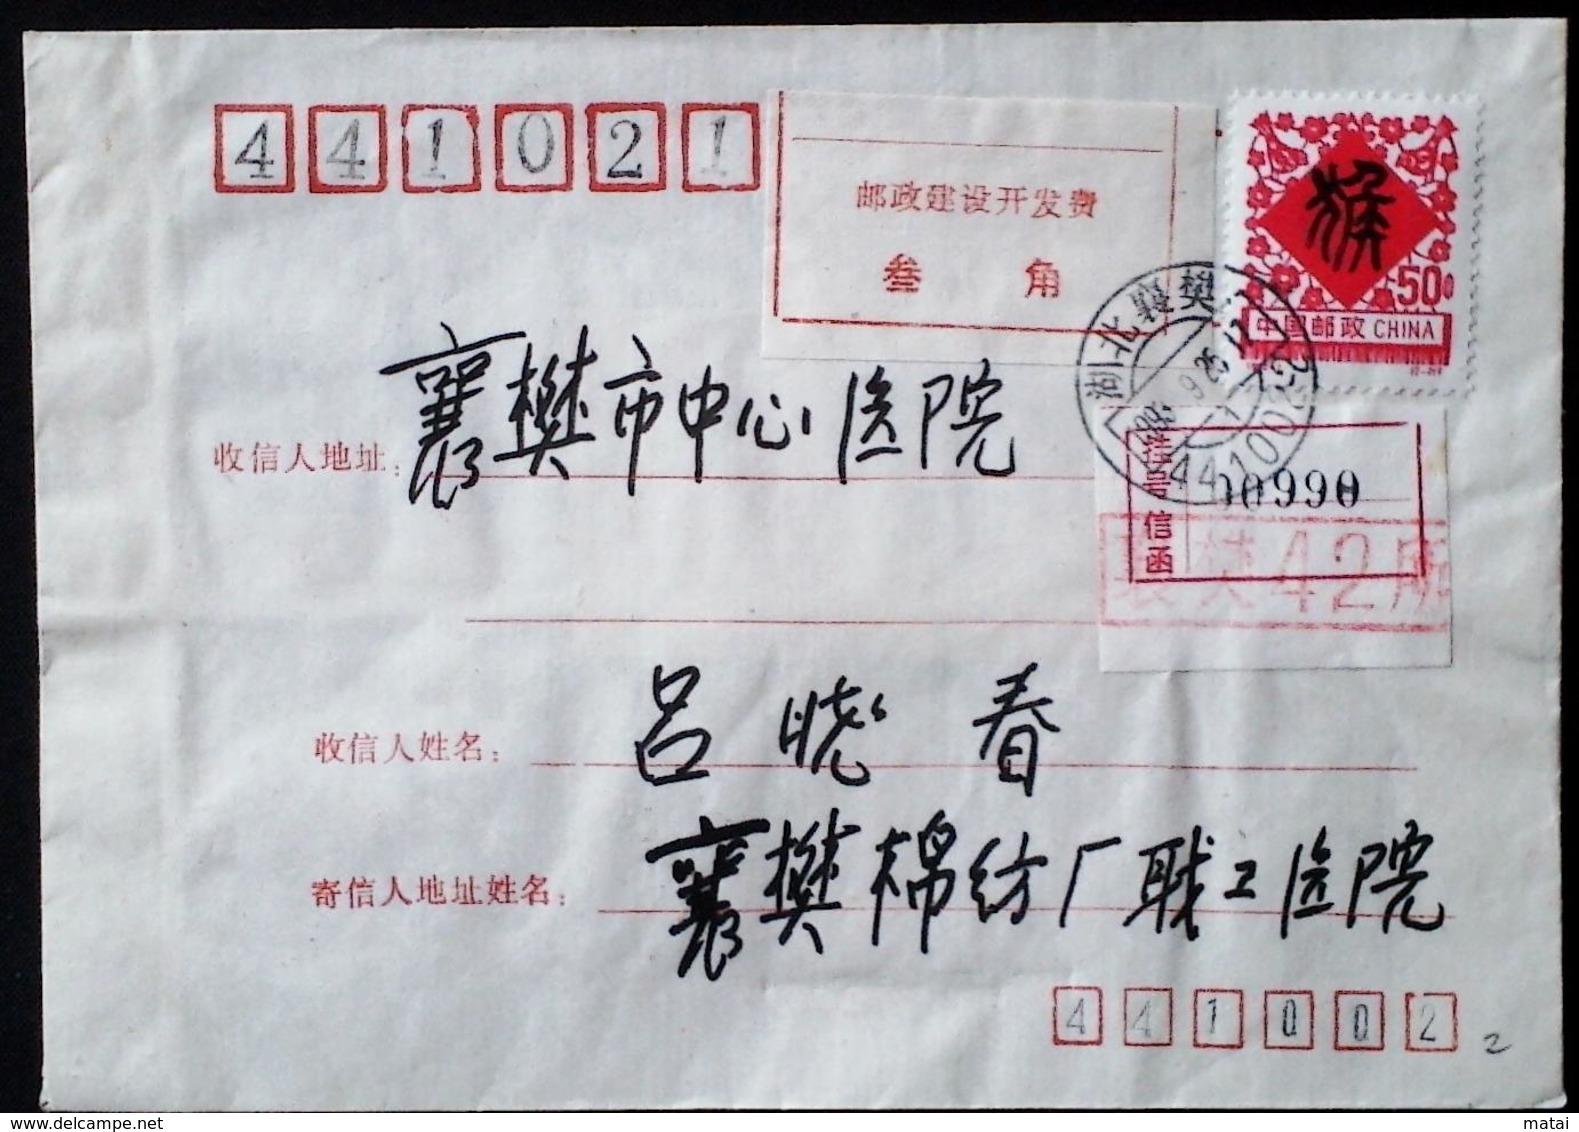 441021
邮政建设开发费
叁 角
猴
50分
中国邮政 CHINA
湖北襄樊
9.25
441002
挂号信函
00990
襄樊42所
收信人地址：襄樊市中心医院
收信人姓名：吕晓春
寄信人地址姓名：襄樊棉纺厂职工医院
441002
2
matai